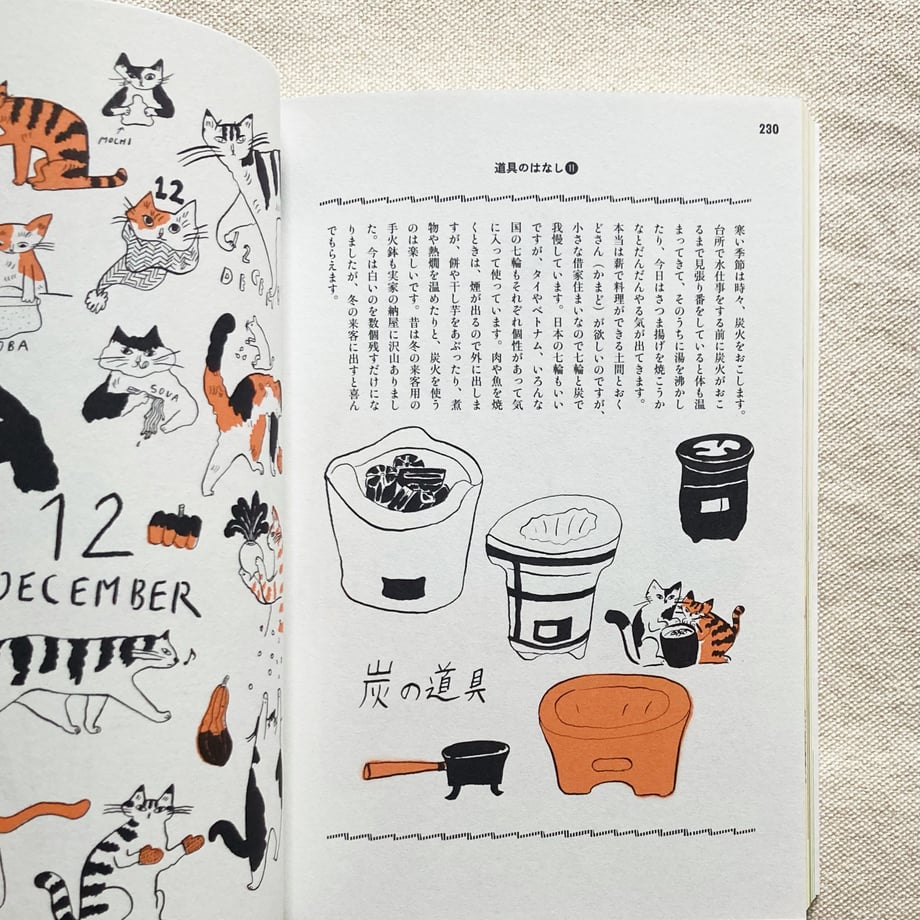 MOCHI
12
SOVA
12
DECEMBER
230
道具のはなし⓫
寒い季節は時々、炭火をおこします。
台所で水仕事をする前に炭火がおこ
るまで見張り番をしていると体も温
まってきて、そのうちに湯を沸かし
たり、今日はさつま揚げを焼こうか
なとだんだんやる気が出てきます。
本当は薪で料理ができる土間とおく
どさん(かまど)が欲しいのですが、
小さな借家住まいなので七輪と炭で
我慢しています。日本の七輪もいい
ですが、タイやベトナム、いろんな
国の七輪もそれぞれ個性があって気
に入って使っています。肉や魚を焼
くときは、煙が出るので外に出しま
すが、餅や干し芋をあぶったり、煮
物や熱燗を温めたりと、炭火を使う
のは楽しいです。昔は冬の来客用の
手火鉢も実家の納屋に沢山ありまし
た。今は白いのを数個残すだけにな
りましたが、冬の来客に出すと喜ん
でもらえます。
炭の道具